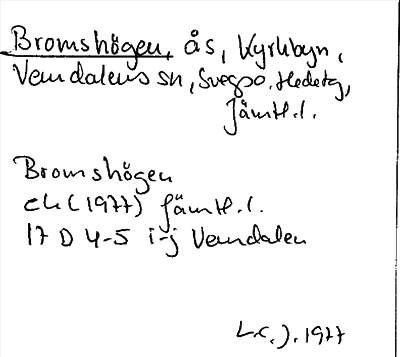 Bromshögen, ås, Kyrkbyn,
Vemdalens sn, Svegs o. Hedetg,
Jämtl. l.
Bromshögen
ek (1977) Jämtl. l.
17 D 4-5 i-j Vemdalen
L.C.J. 1977